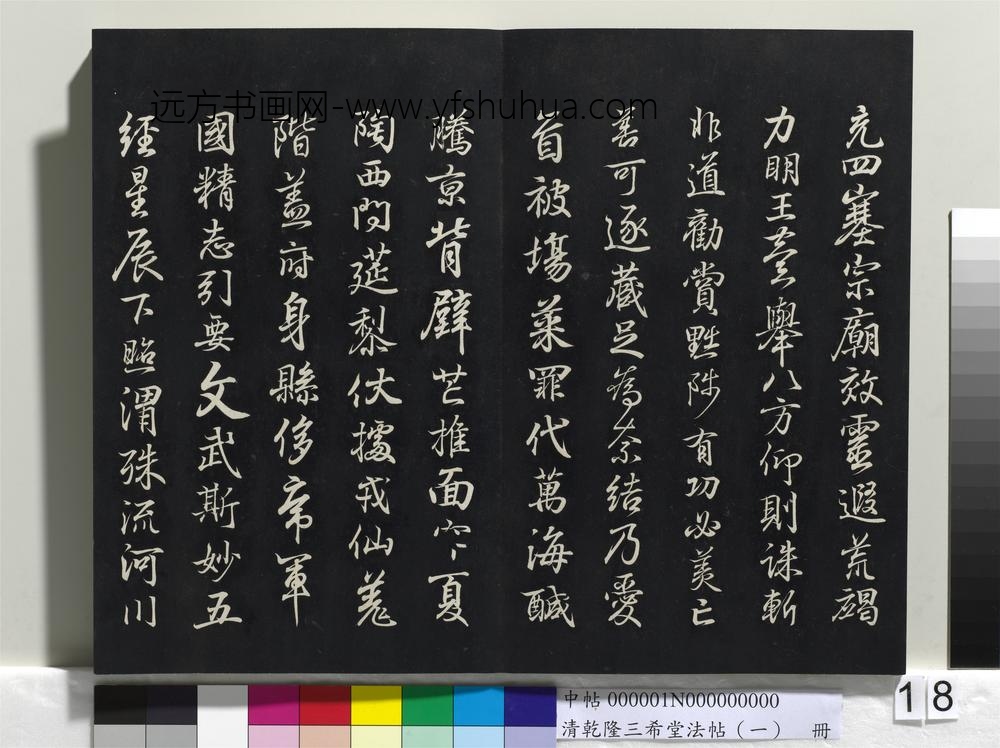 充四塞宗廟效靈遐荒碣
力明王臺舉八方仰則誅斬
非道勸賞黜陟有功必美已
善可逐藏足為奈結乃愛
首被場菜罪代萬海醎
騰京背璧芒推面空夏
陶西問筵梨伏據戎仙羌
階蓋府身縣侈帝軍
國精志引要文武斯妙五
經星辰下照渭殊流河川
远方书画网-www.yfshuhua.com
中帖 000001N000000000
清乾隆三希堂法帖（一） 冊
18